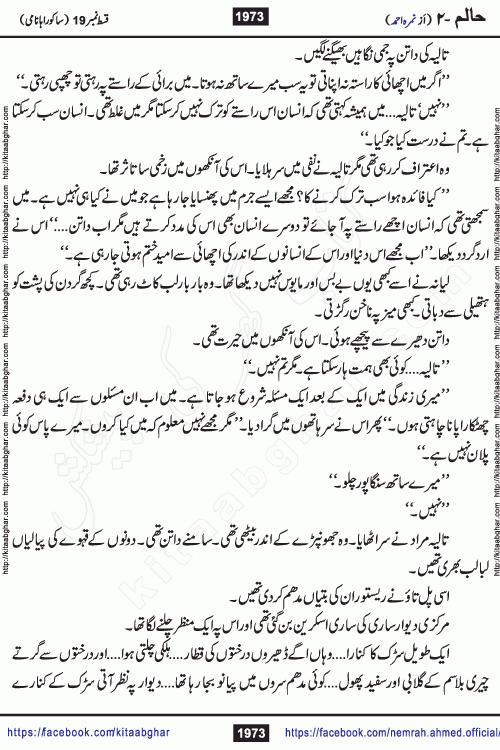 حالم -۲ (از نمرہ احمد)
1973
قسط نمبر 19 (ساکورا ہانامی)
تالیہ کی داتن پہ جمی نگاہیں بھیگنے لگیں۔
’’اگر میں اچھائی کا راستہ نہ اپناتی تو یہ سب میرے ساتھ نہ ہوتا۔ میں برائی کے راستے پہ رہتی تو چھپی رہتی۔‘‘
’’نہیں‘ تالیہ... میں ہمیشہ کہتی تھی کہ انسان اس راستے کو ترک نہیں کر سکتا مگر میں غلط تھی۔ انسان سب کر سکتا
ہے۔ تم نے درست کیا جو کیا۔‘‘
وہ اعتراف کر رہی تھی مگر تالیہ نے نفی میں سر ہلایا۔ اس کی آنکھوں میں زخمی سا تاثر تھا۔
’’کیا فائدہ ہوا سب ترک کرنے کا؟ مجھے ایسے جرم میں پھنسایا جا رہا ہے جو میں نے کیا ہی نہیں ہے۔ میں
سمجھتی تھی کہ انسان اچھے راستے پہ آ جائے تو دوسرے انسان بھی اس کی مدد کرتے ہیں مگر اب داتن....‘‘ اس نے
ارد گرد دیکھا۔ ’’اب مجھے اس دنیا اور اس کے انسانوں کے اندر کی اچھائی سے امید ختم ہوتی جا رہی ہے۔‘‘
لیانہ نے اسے کبھی یوں بے بس اور مایوس نہیں دیکھا تھا۔ وہ بار بار لب کاٹ رہی تھی۔ کچھ گردن کی پشت کو
ہتھیلی سے دباتی۔ کبھی میز پہ ناخن رگڑتی۔
داتن دھیرے سے پیچھے ہوئی۔ اس کی آنکھوں میں حیرت تھی۔
’’تالیہ.... کوئی بھی ہمت ہار سکتا ہے۔ مگر تم نہیں۔‘‘
’’میری زندگی میں ایک کے بعد ایک مسئلہ شروع ہو جاتا ہے۔ میں اب ان مسئلوں سے ایک ہی دفعہ
چھٹکارا پانا چاہتی ہوں۔‘‘ پھر اس نے سر ہاتھوں میں گرا دیا۔ ’’مگر مجھے نہیں معلوم کہ میں کیا کروں۔ میرے پاس کوئی
پلان نہیں ہے۔‘‘
’’میرے ساتھ سنگاپور چلو۔‘‘
’’نہیں۔‘‘
تالیہ مراد نے سر اٹھایا۔ وہ جھونپڑے کے اندر بیٹھی تھی۔ سامنے داتن تھی۔ دونوں کے قہوے کی پیالیاں
لبالب بھری تھیں۔
اسی پل تاؤ نے ریستوران کی بتیاں مدھم کر دی تھیں۔
مرکزی دیوار ساری کی ساری اسکرین بن گئی تھی اور اس پہ ایک منظر چلنے لگا تھا۔
ایک طویل سڑک کا کنارا.... وہاں اگے ڈھیروں درختوں کی قطار.... ہلکی چلتی ہوا.... اور درختوں سے گرتے
چیری بلاسم کے گلابی اور سفید پھول.... کوئی مدھم سروں میں پیانو بجا رہا تھا.... دیوار پہ نظر آتی سڑک کے کنارے
https://facebook.com/kitaabghar
1973
https://facebook.com/nemrah.ahmed.official/
http://kitaabghar.com
kitaabghar.com